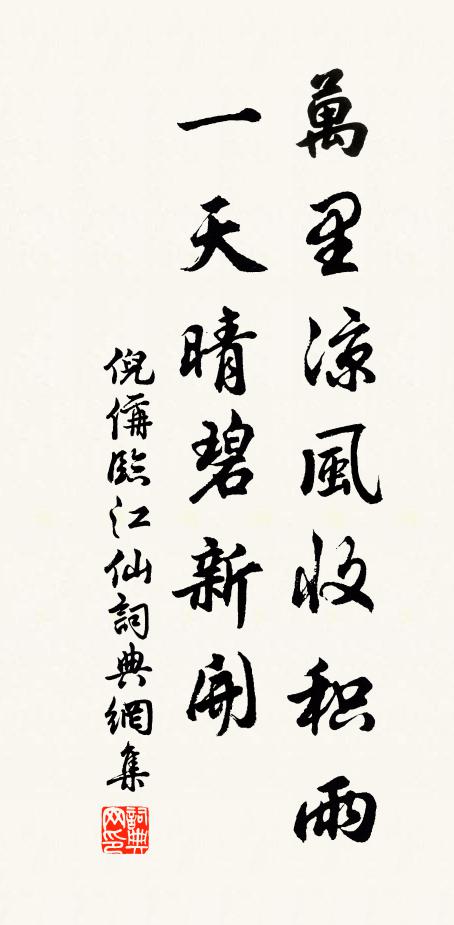 萬里涼風收积雨
一天晴碧新開
倪偁臨江仙詞典網集
詞典网印